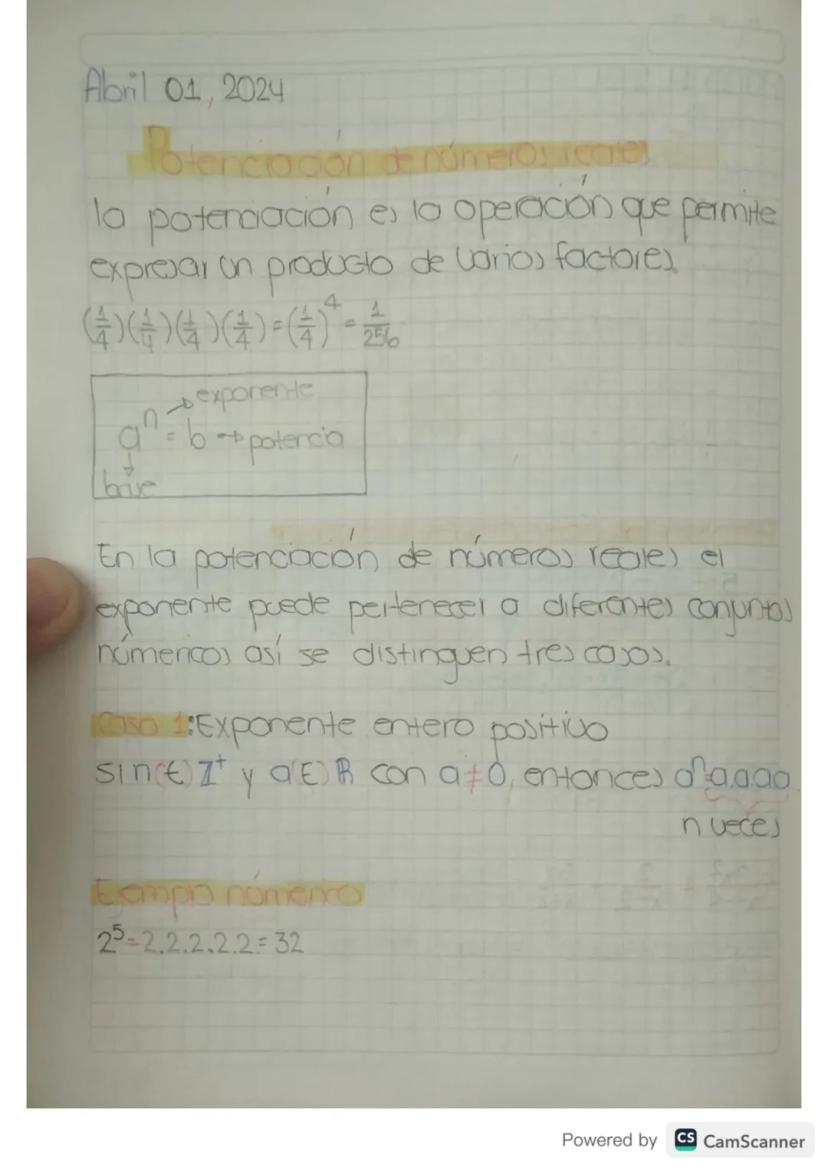 Abril 01, 2024
Potenciación de números reales
la potenciación es la operación que permite
expresar un producto de varios factores.
(1/4)(1/4)(1/4)(1/4)=(1/4)^4=1/256
→exponente
a^n = b → potencia
↓
base
En la potenciación de números reales el
exponente puede pertenecer a diferentes conjuntos
númericos así se distinguen tres casos.
Caso 1: Exponente entero positivo
sin(€) Z⁺ y a(E) ℝ con a≠0, entonces a^n=a.a.a.a
n veces
Ejemplo númerico
2⁵=2.2.2.2.2=32
Powered by CS CamScanner